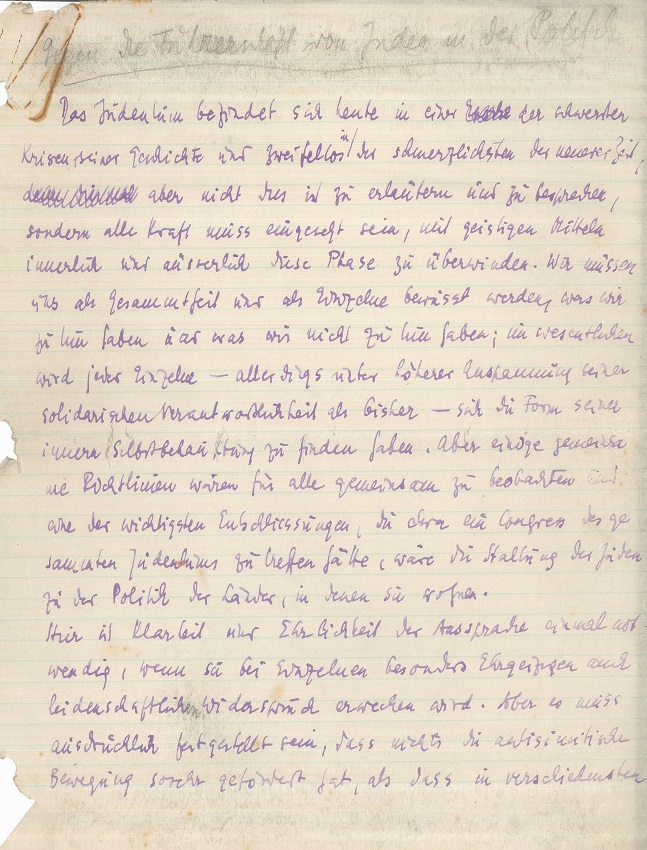 gegen die Führerschaft von Juden in der Politik
Das Judentum befindet sich heute in einer der schwersten
Krisen seiner Geschichte und zweifellos in der schmerzlichsten der neueren Zeit,
aber nicht dies ist zu erläutern und zu besprechen,
sondern alle Kraft muss eingesetzt sein, mit geistigen Mitteln
innerlich und äusserlich diese Phase zu überwinden. Wir müssen
uns als Gesammtheit und als Einzelne bewusst werden, was wir
zu tun haben und was wir nicht zu tun haben; im wesentlichen
wird jeder Einzelne — allerdings unter höherer Anspannung seiner
solidarischen Verantwortlichkeit als bisher — sich die Form seiner
innern Selbstbehauptung zu finden haben. Aber einige gemeinsa
me Richtlinien wären für alle gemeinsam zu beobachten und
eine der wichtigsten Entschliessungen, die etwa ein Congress des ge
sammten Judentums zu treffen hätte, wäre die Stellung der Juden
zu der Politik der Länder, in denen sie wohnen.
Hier ist Klarheit und Ehrlichkeit der Aussprache einmal not-
wendig, wenn sie bei Einzelnen besonders Ehrgeizigen auch
leidenschaftlichen Widerspruch erwecken wird. Aber es muss
ausdrücklich festgestellt sein, dass nichts die antisemitische
Bewegung so sehr gefördert hat, als dass in verschiedensten